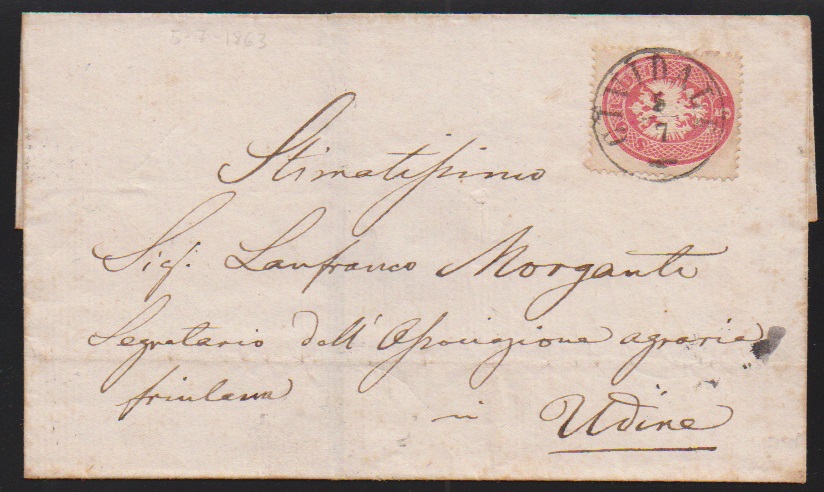 5-7-1863
CIVIDALE
5
7
Stimatissimo
Sig. Lanfranco Morgante
Segretario dell'Associazione agraria
friulana
in Udine